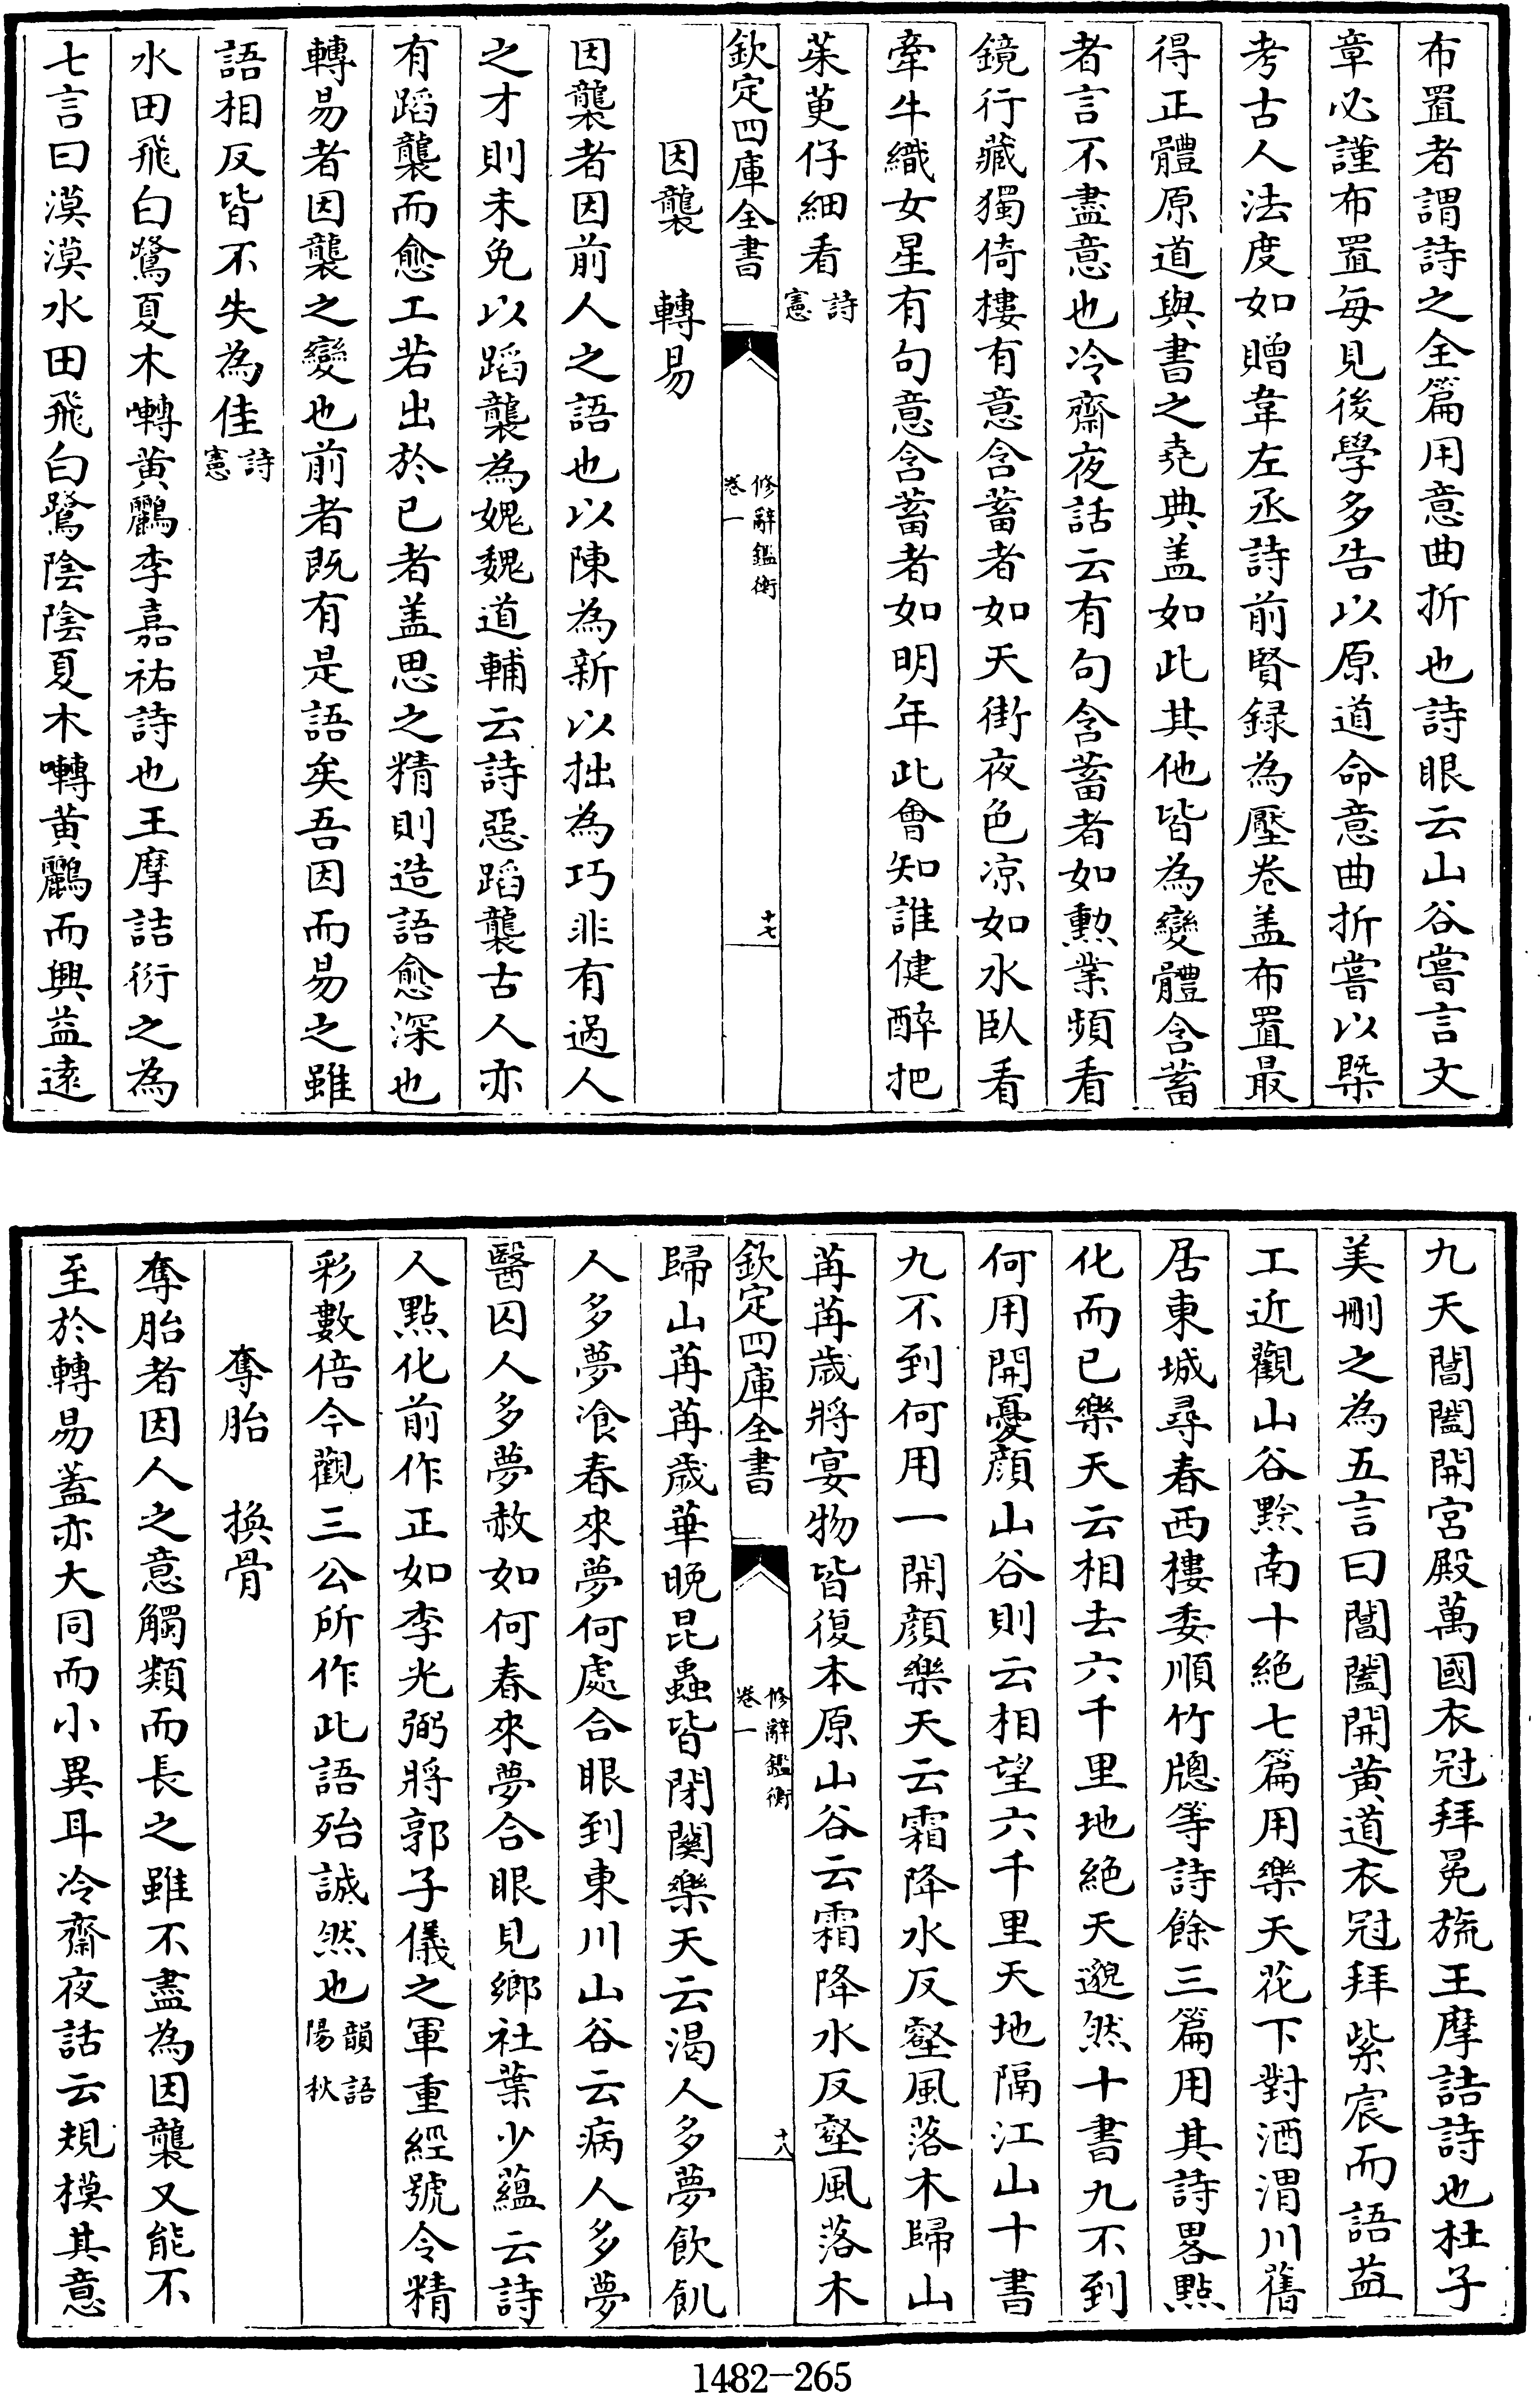 布置者謂詩之全篇用意曲折也詩眼云山谷嘗言文
章必謹布置每見後學多告以原道命意曲折嘗以槩
考古人法度如贈韋左丞詩前賢録為壓卷盖布置最
得正體原道與書之堯典盖如此其他皆為變體含蓄
者言不盡意也冷齋夜話云有句含蓄者如勲業頻看
鏡行藏獨倚樓有意含蓄者如天街夜色凉如水臥看
牽牛織女星有句意含蓄者如明年此會知誰健醉把
茱萸仔細看詩憲
欽定四庫全書
修辭鑑衡
卷一
十七
因襲 轉易
因襲者因前人之語也以陳為新以拙為巧非有過人
之才則未免以蹈襲為媿魏道輔云詩惡蹈襲古人亦
有蹈襲而愈工若出於已者盖思之精則造語愈深也
轉易者因襲之變也前者既有是語矣吾因而易之雖
語相反皆不失為佳詩憲
水田飛白鷺夏木囀黄鸝李嘉祐詩也王摩詰衍之為
七言曰漠漠水田飛白鷺陰陰夏木囀黄鸝而興益遠
九天閶闔開宮殿萬國衣冠拜冕旒王摩詰詩也杜子
美刪之為五言曰閶闔開黄道衣冠拜紫宸而語益
工近觀山谷黔南十絶七篇用樂天花下對酒渭川舊
居東城尋春西樓委順竹牕等詩餘三篇用其詩畧點
化而已樂天云相去六千里地絶天邈然十書九不到
何用開憂顔山谷則云相望六千里天地隔江山十書
九不到何用一開顔樂天云霜降水反壑風落木歸山
苒苒歲將宴物皆復本原山谷云霜降水反壑風落木
欽定四庫全書
修辭鑑衡
卷一
十八
歸山苒苒歲華晚昆蟲皆閉關樂天云渴人多夢飲飢
人多夢飡春來夢何處合眼到東川山谷云病人多夢
醫囚人多夢赦如何春來夢合眼見鄉社葉少蘊云詩
人點化前作正如李光弼將郭子儀之軍重經號令精
彩數倍今觀三公所作此語殆誠然也韻語陽秋
奪胎 換骨
奪胎者因人之意觸類而長之雖不盡為因襲又能不
至於轉易蓋亦大同而小異耳冷齋夜話云規模其意
1482-265